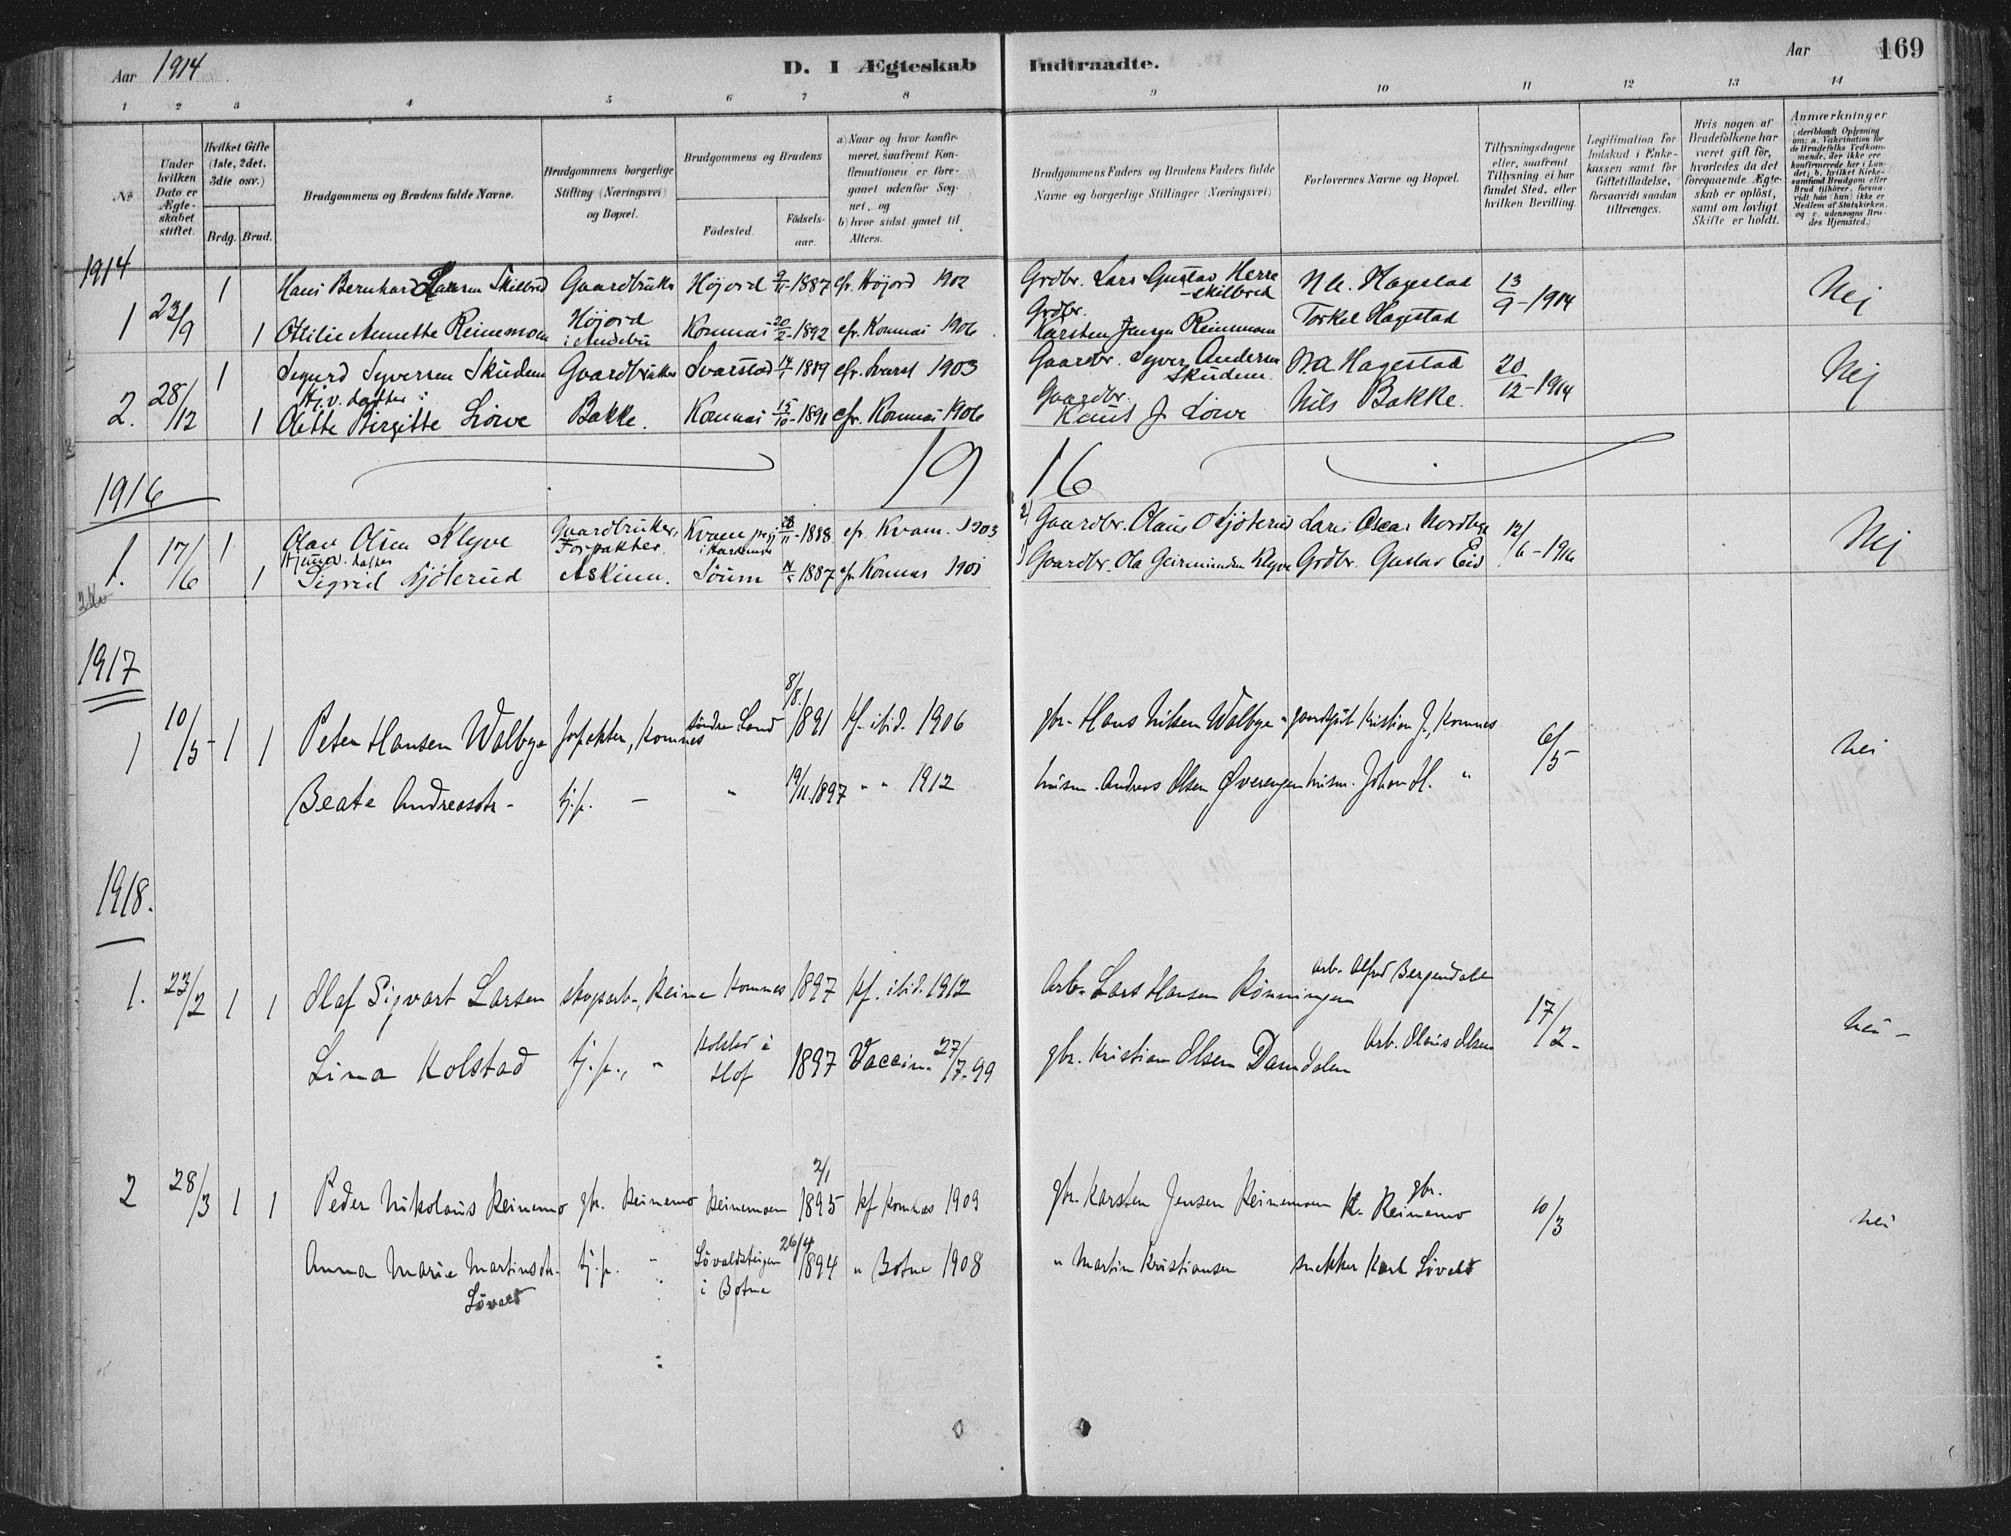 Aar 1914
D. I Ægteskab Indtraadte.
Aar 169
1 2 3 4 5 6 7 8 9 10 11 12 13 14
№
Under hvilken Dato er Ægteskabet stiftet.
Hvilket Gifte (1ste, 2det, 3die osv.)
Brdg. Brud.
Brudgommens og Brudens fulde Navne.
Brudgommens borgerlige Stilling (Næringsvei) og Bopæl.
Brudgommens og Brudens
Födested. Födselsaar.
a) Naar og hvor konfirmeret, saafremt Konfirmationen er foregaaet udenfor Sognet, og
b) hvor sidst gaaet til Alters.
Brudgommens Faders og Brudens Faders fulde Navne og borgerlige Stillinger (Næringsvei)
Forlovernes Navne og Bopæl.
Tillysningsdagene eller, saafremt Tillysning ei har fundet Sted, efter hvilken Bevilling.
Legitimation for Indskud i Enkekassen samt for Giftetilladelse, forsaavidt saadan tiltrænges.
Hvis nogen af Brudefolkene har været gift för, hvorledes da det foregaaende Ægteskab er oplöst, samt om lovligt Skifte er holdt.
Anmærkninger
1914
1 23/9 1 Hans Bernhard Larsen Skilbred Gaardbruker Højord 9/11-1887 cfr. Højord 1902 Grdbr. Lars Gustav Herre-Skilbred N.A. Hagestad 13/9-1914 Nej
1 Otilie Annette Reinemoen Højord i Andebu Komnæs 20/2-1892 cfr. Komnæs 1906 Grdbr. Karsten Jensen Reinemoen Torkel Hagestad
2. 28/12 1 Sigurd Syversen Skudem Gaardbruker Svarstad 14/1 1889 cfr. Svarst 1903 Gaardbr. Syver Andersen Skudem. N.A. Hagestad 20/12-1914 Nej
1 Olette Birgitte Löwe Bakke. Komnæs 15/10-1891 cfr. Komnæs 1906 Gaardbr. Knut J. Löwe Nils Bakke.
1916 1916
1. 17/6 1 Olav Olsen Klyve Gaardbruker, Forpakter Kvam 28/11-1888 cfr. Kvam. 1903 2) Gaardbr. Olaus O Sjöterud Lars Oscar Nordbye 12/6-1916 Nej
1 Sigrid Sjöterud Askim. Sörum 14/5 1887 cfr Komnæs 1901 1) Gaardbr. Ola Geirmundsen Klyve Grdbr. Gustav Eid
1917
1 10/5- 1 1 Peter Hansen Walbye forpakter, Komnes söndre Land 8/8. 1891 kf. ibid. 1906 gbr. Hans Nilsen Walbye gaardgut Kristian J., Komnes 6/5 nei
Beate Andreasdtr- tj.p. - " 19/11.1897 " " 1912 husm. Andreas Olsen Øverengen husm. Johan H. "
1918.
1. 23/2 1 1 Olaf Sigvart Larsen skogsarb., Reine Komnes 1897 kf. ibid. 1912 Arb. Lars Hansen Rönningen arb. Alfred Bergendalen 17/2- nei -
Lina Kolstad tj.p., " Kolstad i Hof 1897 Vaccin. 27/7-99 gbr. Kristian Olsen Damdalen Arb. Olaus Olsen
2 28/3 1 1 Peder Nikolaus Reinemo gbr. Reinemo Reinemoen 2/1 1895 kf Komnæs 1909 gbr. Karsten Jensen Reinemoen gbr. K. Reinemo 10/3 nei
Anna Marie Martinsdtr. Lövald tj.p. " Lövaldsteigen i Botne 26/4 1894 " Botne 1908 " Martin Kristiansen snekker Karl Lövald